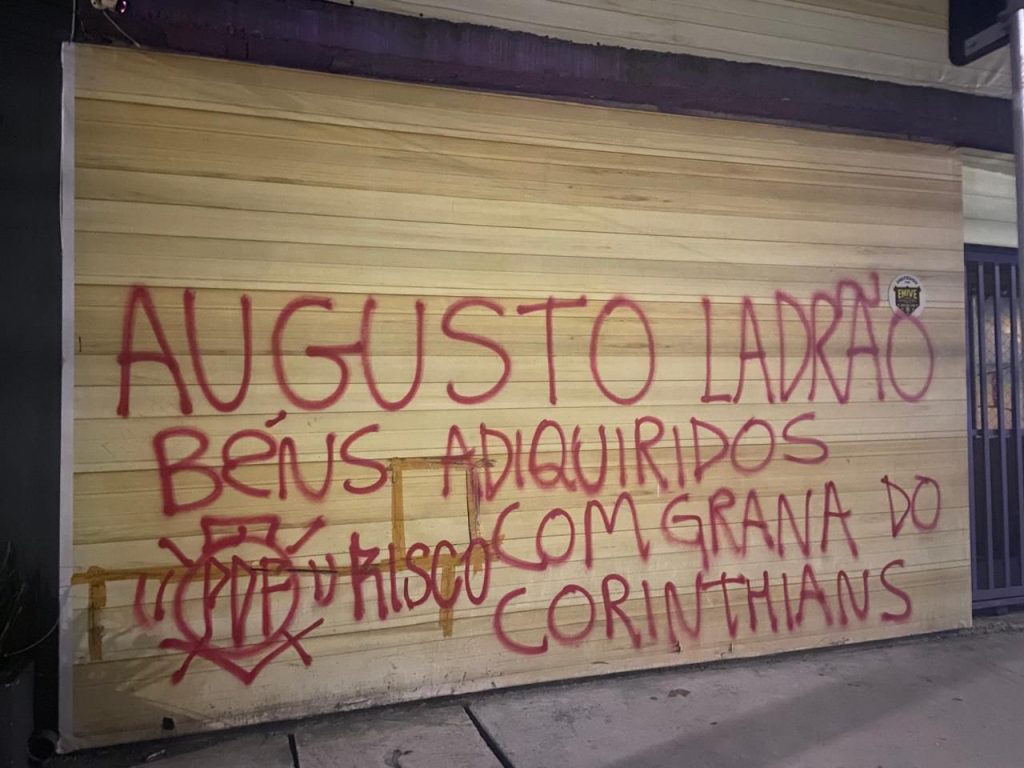 AUGUSTO LADRÃO
BÉNS ADIQUIRIDOS
COM GRANA DO
CORINTHIANS
"PDF" RISCO
EMIVE